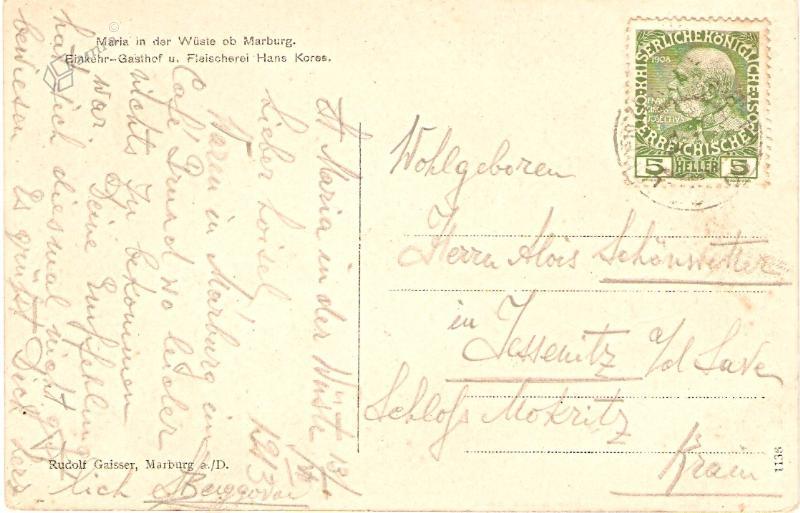 Maria in der Wüste ob Marburg.
Einkehr-Gasthof u. Fleischerei Hans Kores.
St Maria in der Wüste
1913
Lieber Loisel
Waren in Marburg im
Café wo leider
nichts zu bekommen
war Deine Empfehlung
hat sich diesmal nicht
bewiesen Es grüßt Dich
lich
KAISERLICHEKÖNIGLICHE
ÖSTERREICHISCHE POST
1908
5 HELLER 5
Wohlgeboren
Herrn Alois Schönwetter
in
Jessenitz a/d Save
Schloß Mokritz
Krain
Rudolf Gaisser, Marburg a./D.
1138